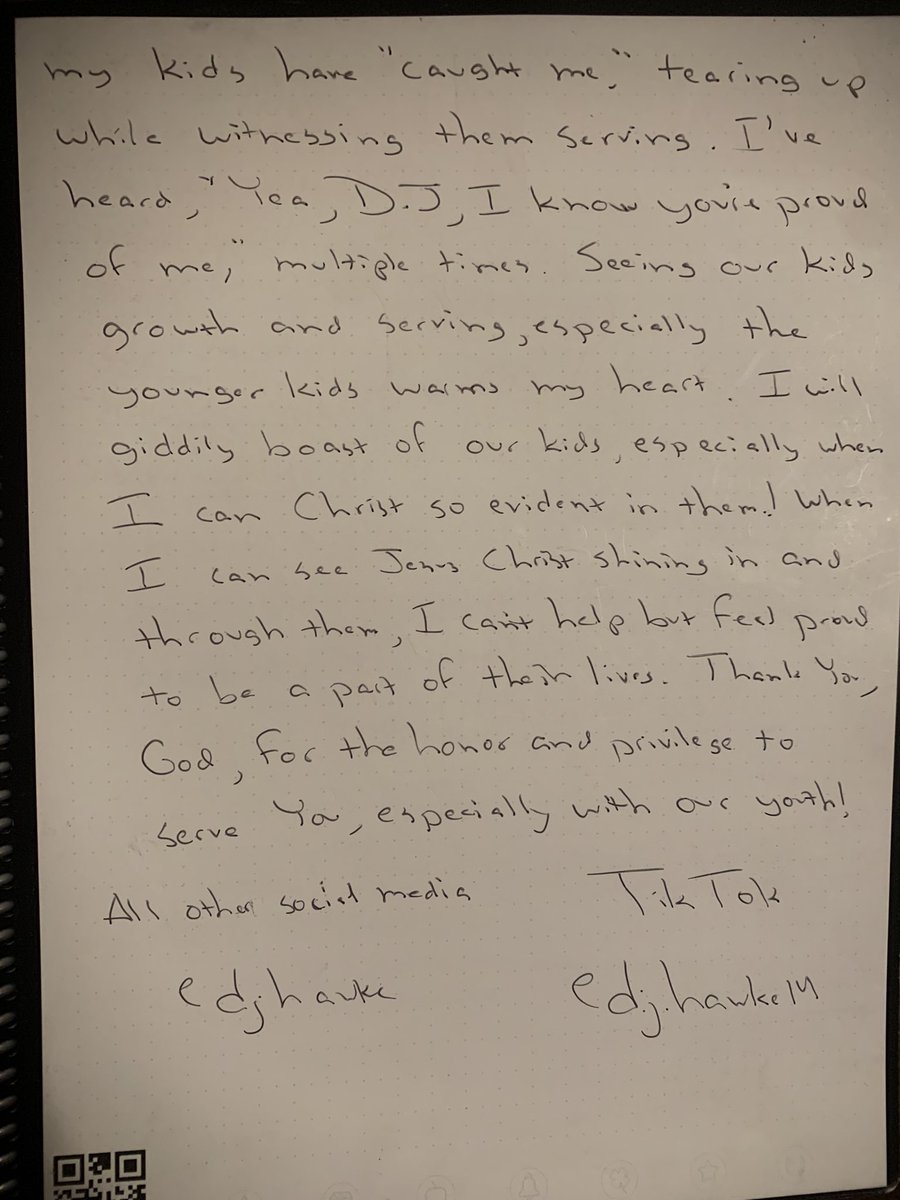 my kids have "caught me," tearing up
while witnessing them serving. I've
heard, "Yea, D.J, I know you're proud
of me," multiple times. Seeing our kids
growth and serving, especially the
younger kids warms my heart. I will
giddily boast of our kids, especially when
I can Christ so evident in them! When
I can see Jesus Christ shining in and
through them, I can't help but feel proud
to be a part of their lives. Thank You,
God, for the honor and privilege to
serve You, especially with our youth!
All other social media
TikTok
@djhawke
@d.j.hawke14